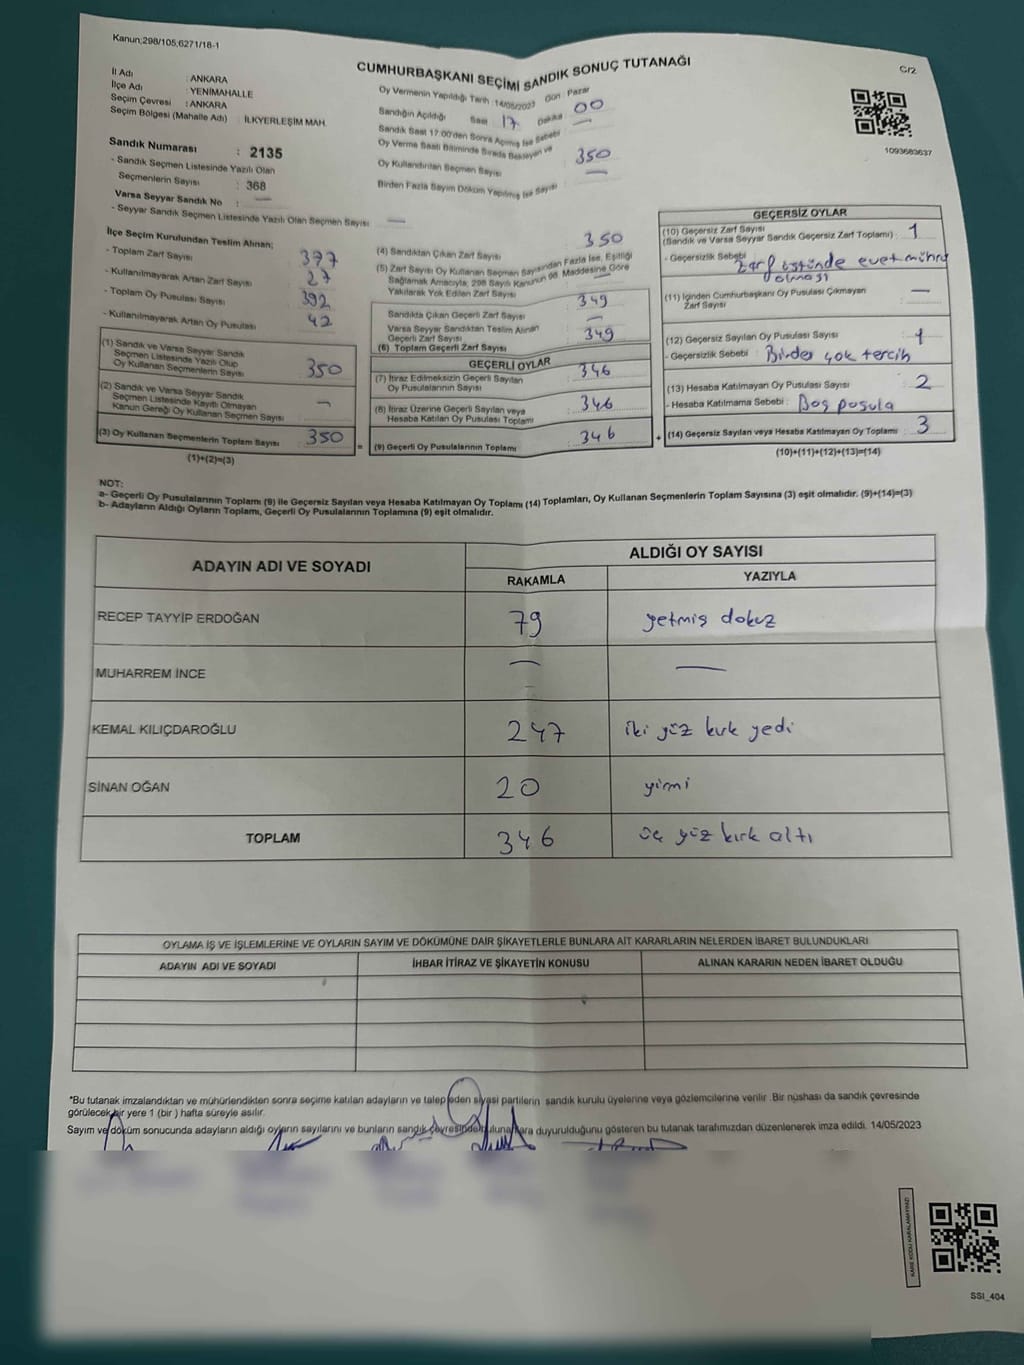 Kanun;298/105;6271/18-1
CUMHURBAŞKANI SEÇİMİ SANDIK SONUÇ TUTANAĞI
C/2
İl Adı : ANKARA
İlçe Adı : YENİMAHALLE
Seçim Çevresi : ANKARA
Seçim Bölgesi (Mahalle Adı) : İLKYERLEŞİM MAH.
Sandık Numarası : 2135
- Sandık Seçmen Listesinde Yazılı Olan
Seçmenlerin Sayısı : 368
Varsa Seyyar Sandık No : —
- Seyyar Sandık Seçmen Listesinde Yazılı Olan Seçmen Sayısı —
Oy Vermenin Yapıldığı Tarih : 14/05/2023 Gün : Pazar
Sandığın Açıldığı Saat 17 Dakika 00
Sandık Saat 17:00'den Sonra Açılmış İse Sebebi —
Oy Verme Saati Bitiminde Sırada Bekleyen ve
Oy Kullandırılan Seçmen Sayısı : 350
Birden Fazla Sayım Döküm Yapılmış İse Sayısı —
1093683637
İlçe Seçim Kurulundan Teslim Alınan;
- Toplam Zarf Sayısı : 377
- Kullanılmayarak Artan Zarf Sayısı : 27
- Toplam Oy Pusulası Sayısı : 392
- Kullanılmayarak Artan Oy Pusulası : 42
(1) Sandık ve Varsa Seyyar Sandık
Seçmen Listesinde Yazılı Olup
Oy Kullanan Seçmenlerin Sayısı : 350
(2) Sandık ve Varsa Seyyar Sandık
Seçmen Listesinde Kayıtlı Olmayan
Kanun Gereği Oy Kullanan Seçmen Sayısı : —
(3) Oy Kullanan Seçmenlerin Toplam Sayısı : 350
(1)+(2)=(3)
(4) Sandıktan Çıkan Zarf Sayısı : 350
(5) Zarf Sayısı Oy Kullanan Seçmen Sayısından Fazla İse, Eşitliği
Sağlamak Amacıyla, 298 Sayılı Kanunun 98. Maddesine Göre
Yakılarak Yok Edilen Zarf Sayısı : —
Sandıkta Çıkan Geçerli Zarf Sayısı : 349
Varsa Seyyar Sandıktan Teslim Alınan
Geçerli Zarf Sayısı : —
(6) Toplam Geçerli Zarf Sayısı : 349
GEÇERLİ OYLAR
(7) İtiraz Edilmeksizin Geçerli Sayılan
Oy Pusulalarının Sayısı : 346
(8) İtiraz Üzerine Geçerli Sayılan veya
Hesaba Katılan Oy Pusulası Toplamı : 346
= (9) Geçerli Oy Pusulalarının Toplamı : 346
GEÇERSİZ OYLAR
(10) Geçersiz Zarf Sayısı
(Sandık ve Varsa Seyyar Sandık Geçersiz Zarf Toplamı) : 1
- Geçersizlik Sebebi : Zarf üstünde evet mührü
olması
(11) İçinden Cumhurbaşkanı Oy Pusulası Çıkmayan
Zarf Sayısı : —
(12) Geçersiz Sayılan Oy Pusulası Sayısı : 1
- Geçersizlik Sebebi : Birden çok tercih
(13) Hesaba Katılmayan Oy Pusulası Sayısı : 2
- Hesaba Katılmama Sebebi : Boş pusula
+ (14) Geçersiz Sayılan veya Hesaba Katılmayan Oy Toplamı : 3
(10)+(11)+(12)+(13)=(14)
NOT:
a- Geçerli Oy Pusulalarının Toplamı (9) ile Geçersiz Sayılan veya Hesaba Katılmayan Oy Toplamı (14) Toplamları, Oy Kullanan Seçmenlerin Toplam Sayısına (3) eşit olmalıdır. (9)+(14)=(3)
b- Adayların Aldığı Oyların Toplamı, Geçerli Oy Pusulalarının Toplamına (9) eşit olmalıdır.
ADAYIN ADI VE SOYADI ALDIĞI OY SAYISI
RAKAMLA YAZIYLA
RECEP TAYYİP ERDOĞAN 79 yetmiş dokuz
MUHARREM İNCE — —
KEMAL KILIÇDAROĞLU 247 iki yüz kırk yedi
SİNAN OĞAN 20 yirmi
TOPLAM 346 üç yüz kırk altı
OYLAMA İŞ VE İŞLEMLERİNE VE OYLARIN SAYIM VE DÖKÜMÜNE DAİR ŞİKAYETLERLE BUNLARA AİT KARARLARIN NELERDEN İBARET BULUNDUKLARI
ADAYIN ADI VE SOYADI İHBAR İTİRAZ VE ŞİKAYETİN KONUSU ALINAN KARARIN NEDEN İBARET OLDUĞU
*Bu tutanak imzalandıktan ve mühürlendikten sonra seçime katılan adayların ve talep eden siyasi partilerin sandık kurulu üyelerine veya gözlemcilerine verilir. Bir nüshası da sandık çevresinde
görülecek bir yere 1 (bir ) hafta süreyle asılır.
Sayım ve döküm sonucunda adayların aldığı oyların sayılarını ve bunların sandık çevresinde bulunanlara duyurulduğunu gösteren bu tutanak tarafımızdan düzenlenerek imza edildi. 14/05/2023
KARE KODU KARALAMAYINIZ!
SSI_404